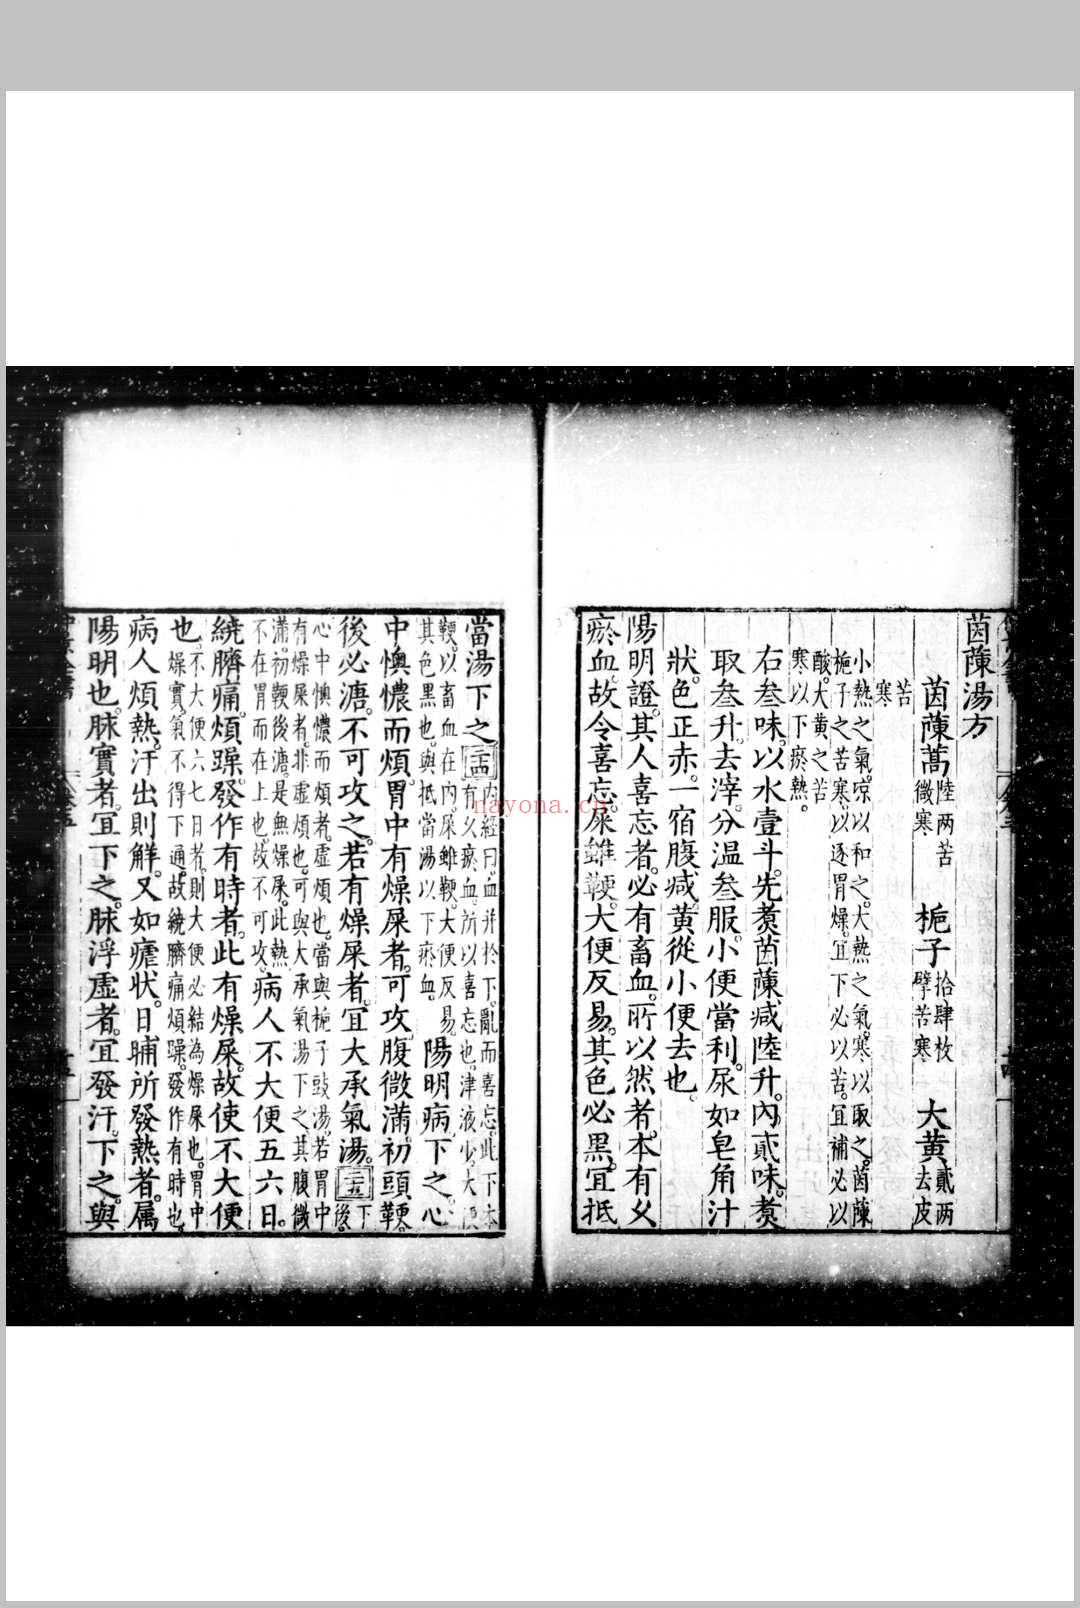 茵蔯湯方
茵蔯蒿陸两苦微寒 梔子拾肆枚擘苦寒 大黃貳两去皮
苦
寒
小熱之氣。凉以和之。大熱之氣。寒以取之。茵蔯
梔子之苦寒。以逐胃燥。宜下必以苦。宜補必以
酸。大黃之苦
寒以下瘀熱。
右叁味。以水壹斗。先煑茵蔯减陸升。內貳味。煑
取叁升。去滓。分温叁服。小便當利。尿如皂角汁
狀。色正赤。一宿腹减。黃從小便去也。
陽明證。其人喜忘者。必有畜血。所以然者。本有乆
瘀血。故令喜忘。屎雖鞕。大便反易。其色必黑。宜抵
當湯下之。
內經曰。血并於下。亂而喜忘。此下本
有乆瘀血。所以喜忘也。津液少。大便
鞕。以畜血在內。屎雖鞕。大便反易。
其色黑也。與抵當湯以下瘀血。
陽明病。下之。心
中懊憹而煩。胃中有燥屎者。可攻。腹微滿。初頭鞕。
後必溏。不可攻之。若有燥屎者。宜大承氣湯。
下
後。
心中懊憹而煩者。虛煩也。當與梔子豉湯。若胃中
有燥屎者。非虛煩也。可與大承氣湯下之。其腹微
滿。初鞕後溏。是無燥屎。此熱
不在胃而在上也。故不可攻。
病人不大便五六日。
繞臍痛。煩躁。發作有時者。此有燥屎。故使不大便
也。
不大便六七日者。則大便必結為燥屎也。胃中
燥實。氣不得下通。故繞臍痛煩躁。發作有時也。
病人煩熱。汗出則觧。又如瘧狀。日晡所發熱者。属
陽明也。脉實者。宜下之。脉浮虛者。宜發汗。下之。與
nayona.cn